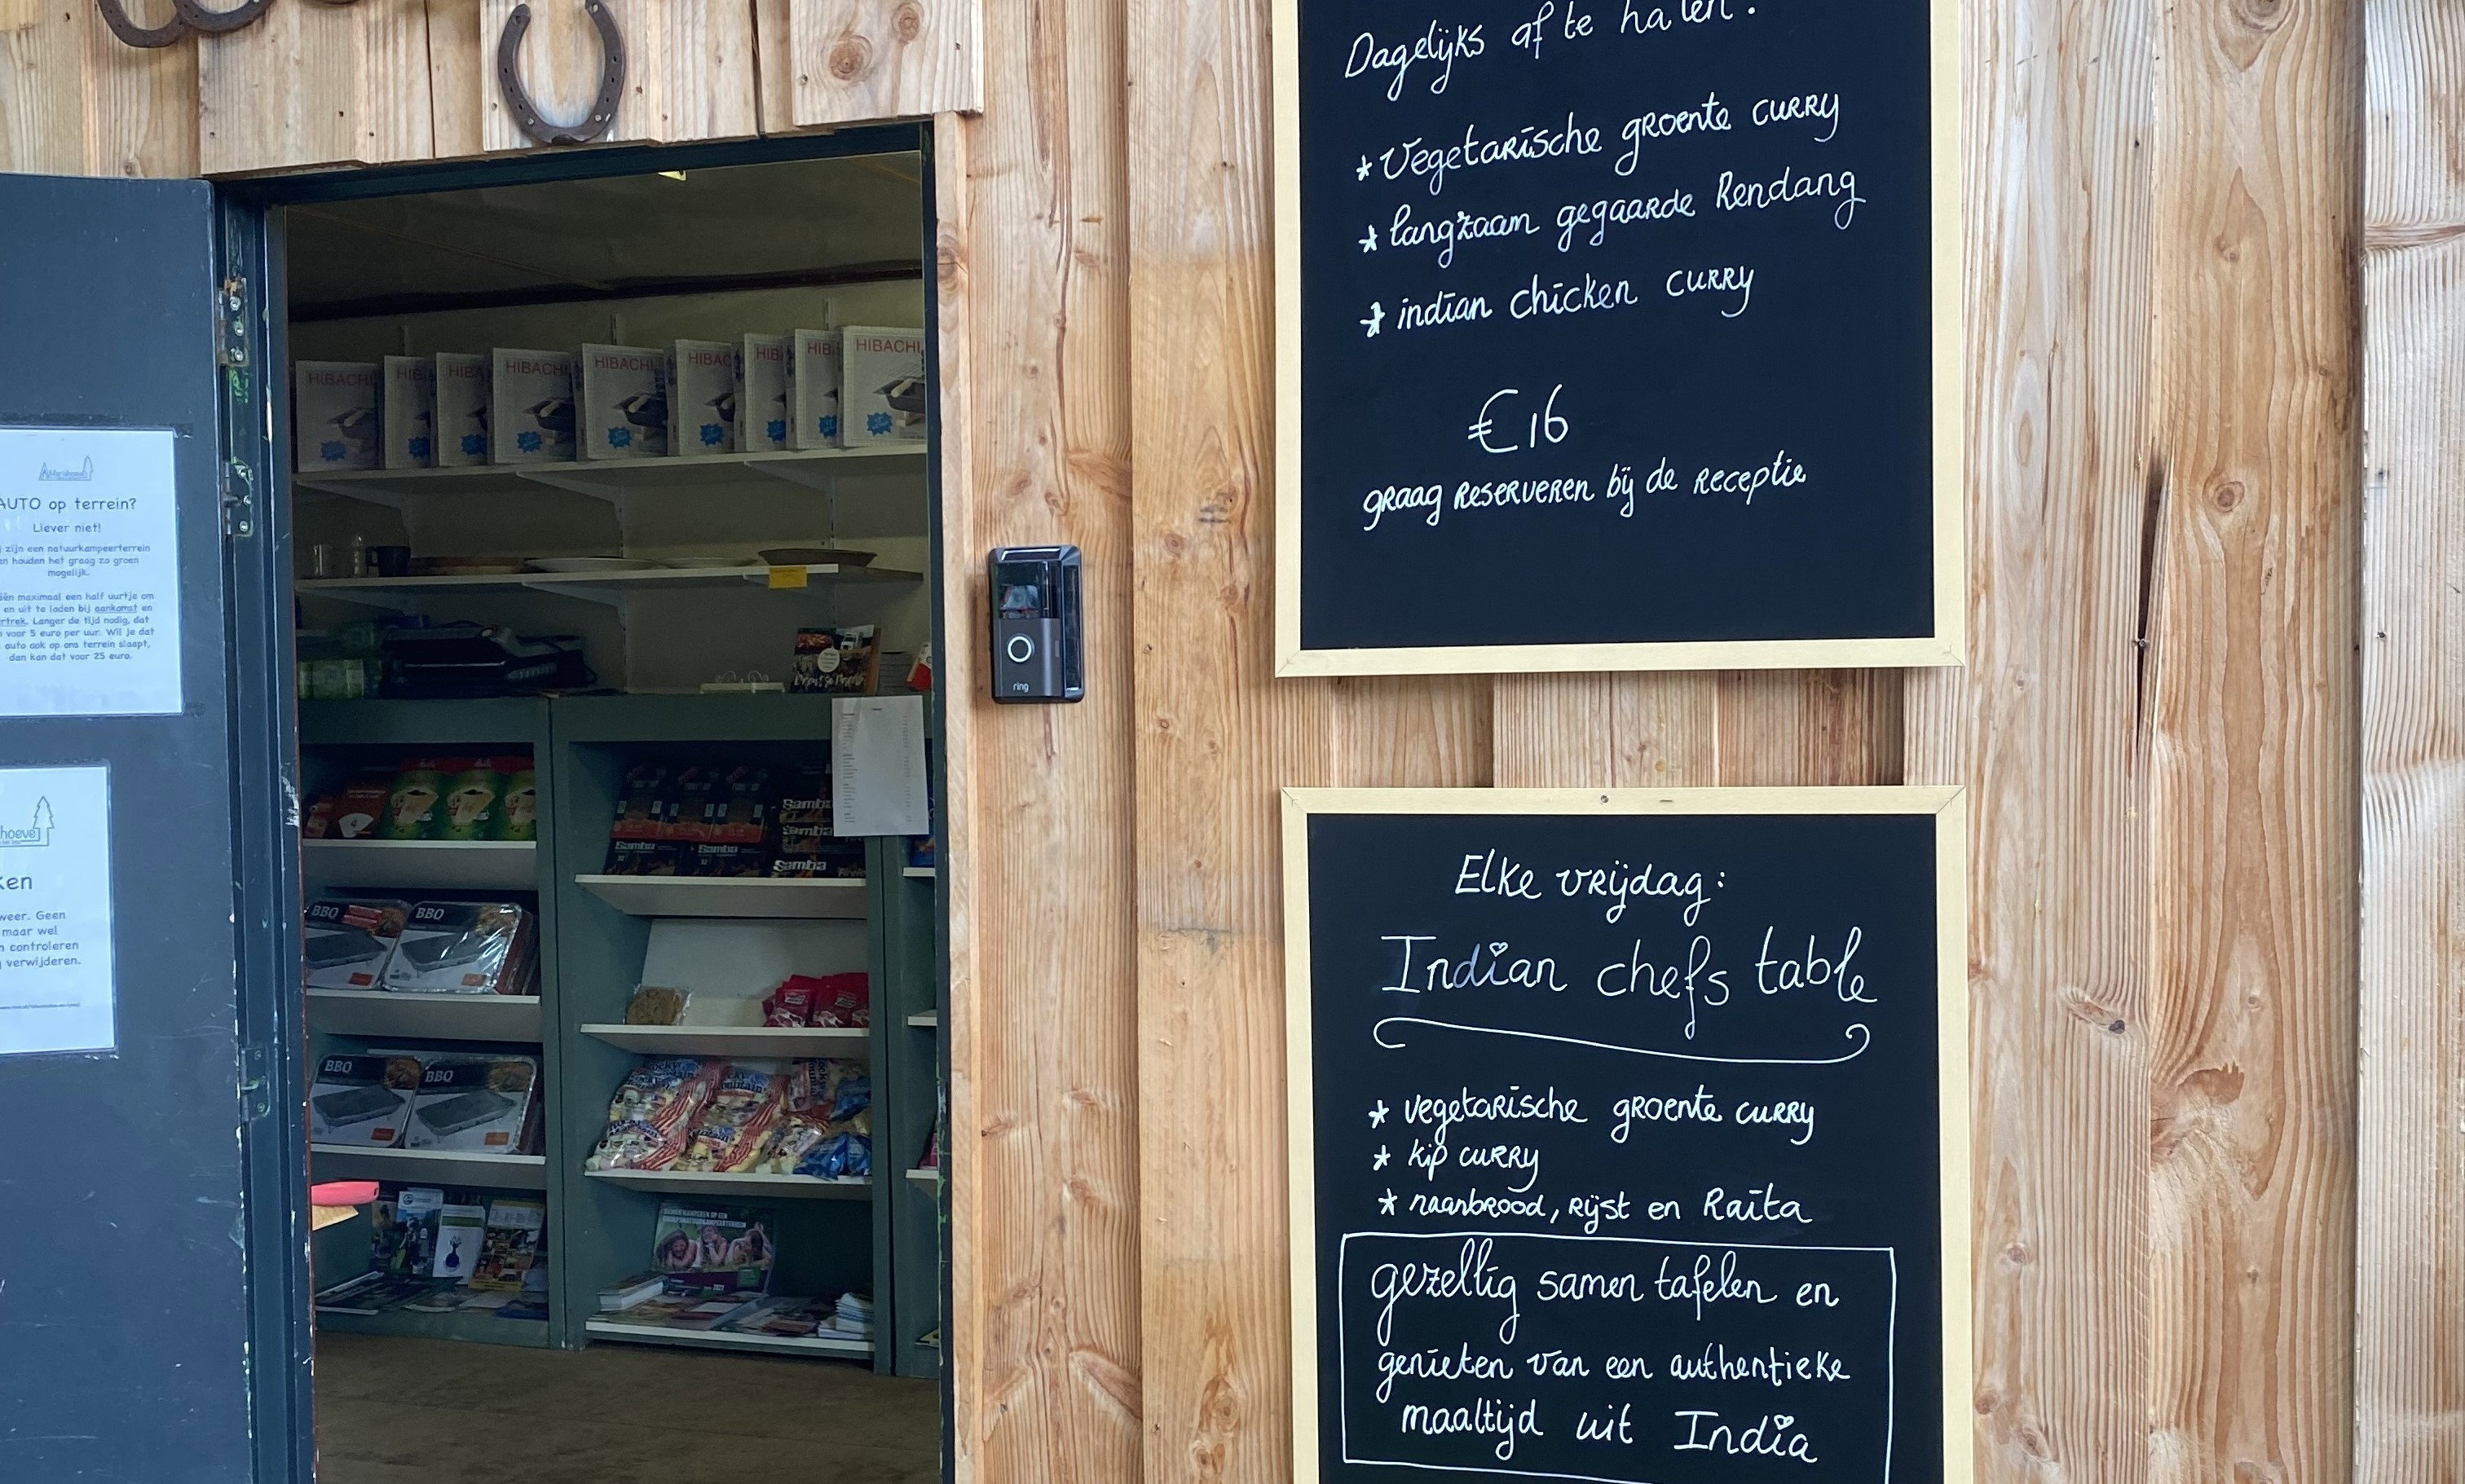 Dagelijks af te halen:
* Vegetarische groente curry
* langzaam gegaarde Rendang
* indian chicken curry
€16
graag reserveren bij de receptie
Elke vrijdag:
Indian chefs table
* vegetarische groente curry
* kip curry
* naanbrood, rijst en Raita
gezellig samen tafelen en
genieten van een authentieke
maaltijd uit India
ring
AUTO op terrein?
Liever niet!
zijn een natuurkampeerterrein
en houden het graag zo groen
mogelijk.
één maximaal een half uurtje om
en uit te laden bij aankomst en
rtrek. Langer de tijd nodig, dat
voor 5 euro per uur. Wil je dat
auto ook op ons terrein slaapt,
dan kan dat voor 25 euro.
hoeve
ken
weer. Geen
maar wel
n controleren
verwijderen.
HIBACHI
HIB
HIBA
HIBACHI
HIBACHI
HIBAC
HIB
HIB
HIBACHI
Samba
Samba
Samba
Samba
Samba
BBQ
BBQ
BBQ
BBQ